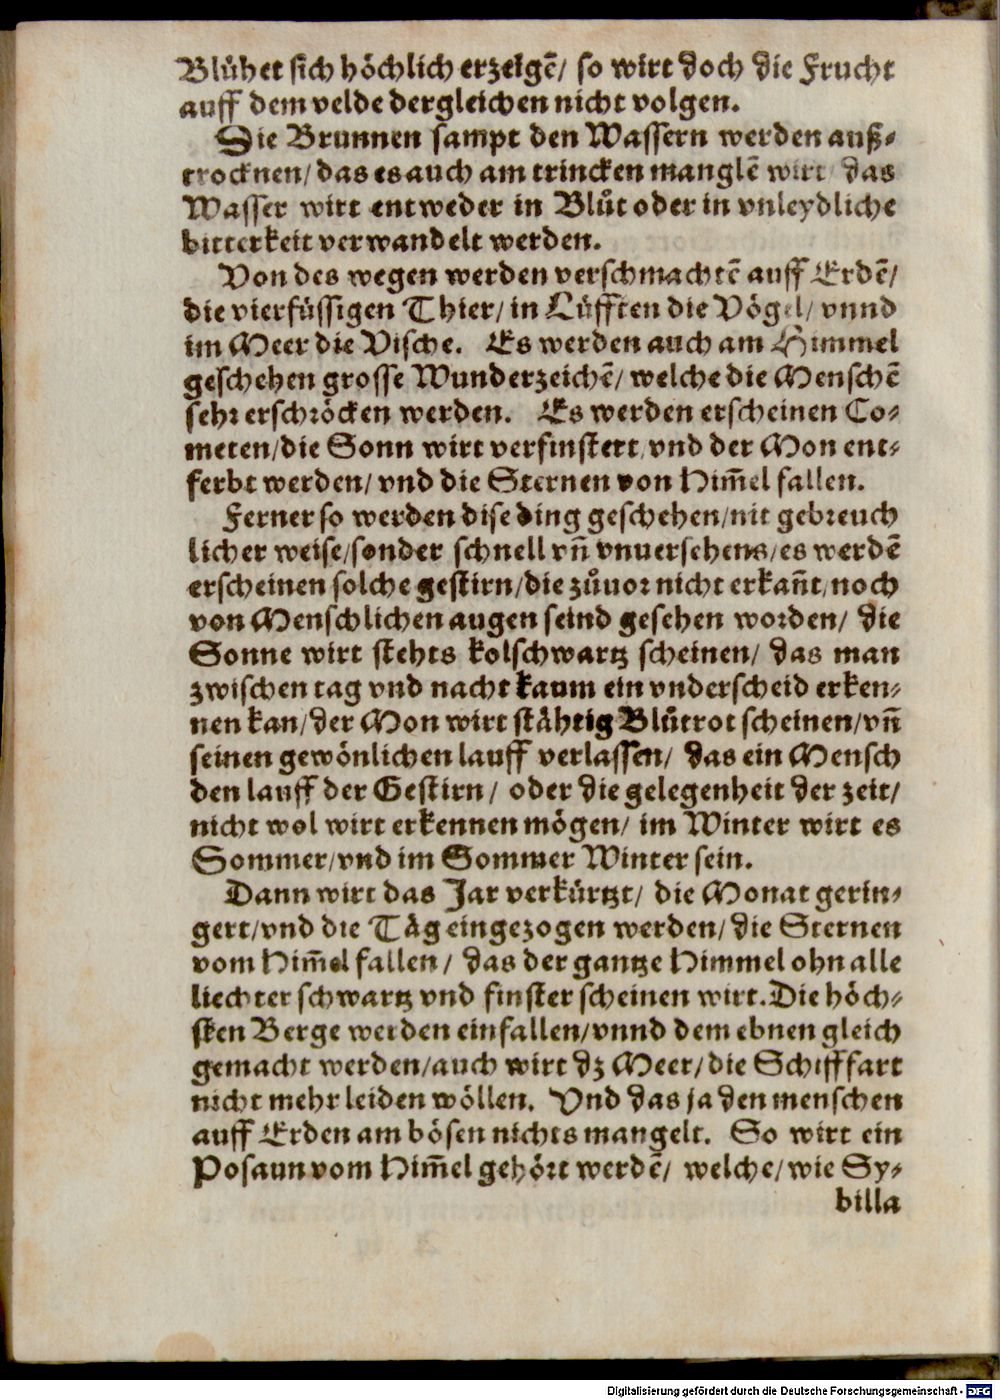 Blůhet sich höchlich erzeigē/ so wirt doch die Frucht
auff dem velde dergleichen nicht volgen.
Die Brunnen sampt den Wassern werden auß-
trocknen/ das es auch am trincken manglē wirt das
Wasser wirt entweder in Blůt oder in vnleydliche
bitterkeit verwandelt werden.
Von des wegen werden verschmachtē auff Erdē/
die vierfüssigen Thier/ in Lüfften die Vögel/ vnnd
im Meer die Vische. Es werden auch am Himmel
geschehen grosse Wunderzeichē/ welche die Menschē
sehr erschröcken werden. Es werden erscheinen Co-
meten/ die Sonn wirt verfinstert/ vnd der Mon ent-
ferbt werden/ vnd die Sternen von Him̄el fallen.
Ferner so werden dise ding geschehen/ nit gebreuch
licher weise/ sonder schnell vn̄ vnuersehens/ es werdē
erscheinen solche gestirn/ die zůuor nicht erkan̄t/ noch
von Menschlichen augen seind gesehen worden/ die
Sonne wirt stehts kolschwartz scheinen/ das man
zwischen tag vnd nacht kaum ein vnderscheid erken-
nen kan/ der Mon wirt stähtig Blůtrot scheinen/ vn̄
seinen gewönlichen lauff verlassen/ das ein Mensch
den lauff der Gestirn/ oder die gelegenheit der zeit/
nicht wol wirt erkennen mögen/ im Winter wirt es
Sommer/ vnd im Sommer Winter sein.
Dann wirt das Jar verkürtzt/ die Monat gerin-
gert/ vnd die Täg eingezogen werden/ die Sternen
vom Him̄el fallen/ das der gantze Himmel ohn alle
liechter schwartz vnd finster scheinen wirt. Die höch-
sten Berge werden einfallen/ vnnd dem ebnen gleich
gemacht werden/ auch wirt dz Meer/ die Schifffart
nicht mehr leiden wöllen. Vnd das ja den menschen
auff Erden am bösen nichts mangelt. So wirt ein
Posaun vom Him̄el gehört werdē/ welche/ wie Sy-
billa
Digitalisierung gefördert durch die Deutsche Forschungsgemeinschaft - DFG